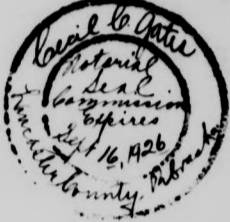 Cecil C. Gates
Notarial
Seal
Commission
Expires
Sept 16, 1926
Lancaster County, Nebraska